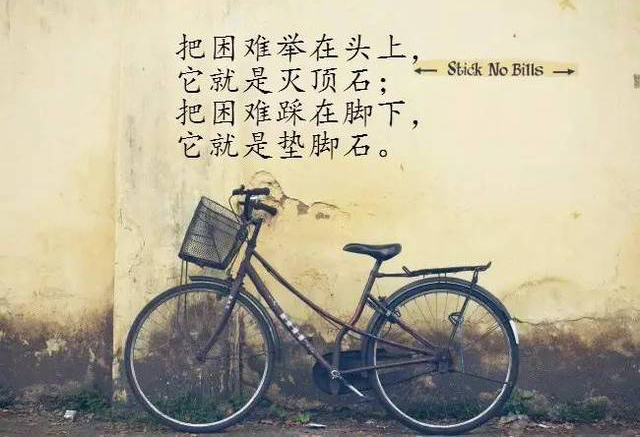 把困难举在头上，
它就是灭顶石；
把困难踩在脚下，
它就是垫脚石。
← Stick No Bills →